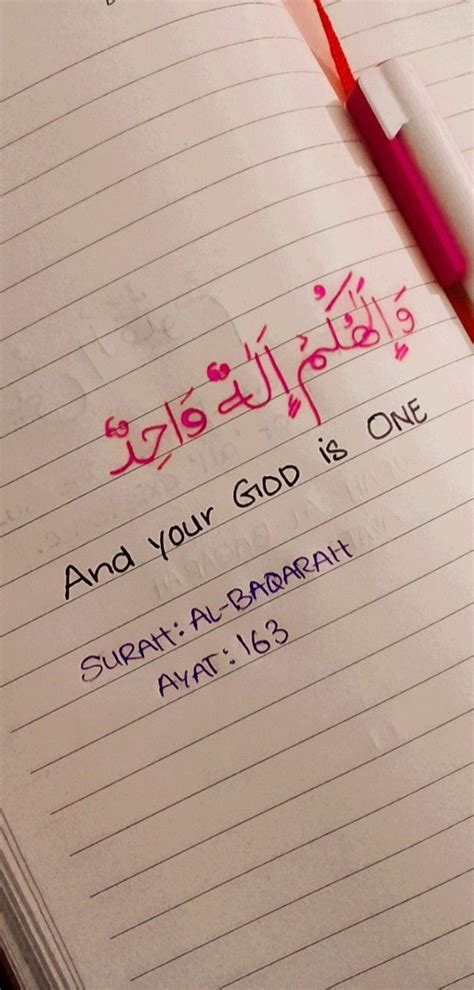 وَإِلَٰهُكُمْ إِلَٰهٌ وَاحِدٌ
And your GOD is ONE
SURAH: AL-BAQARAH
AYAT: 163